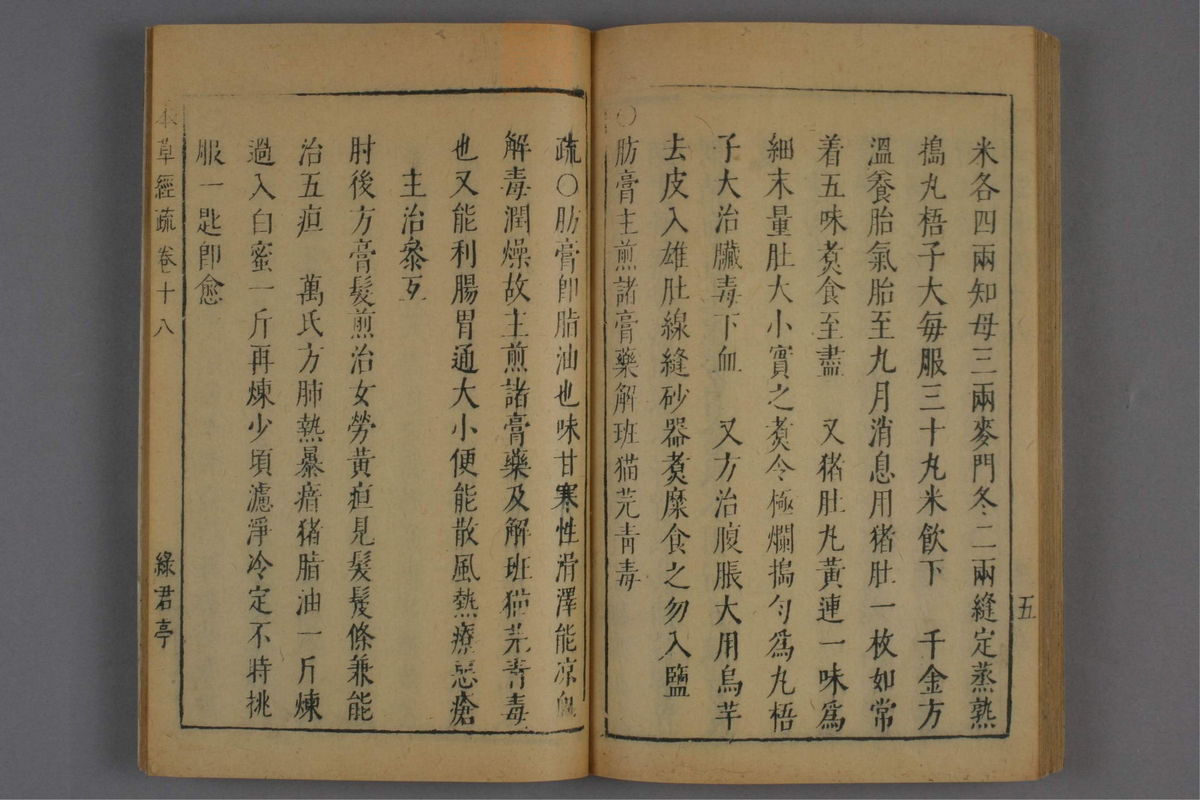 五
米各四兩知母三兩麥門冬二兩縫定蒸熟
搗丸梧子大每服三十丸米飲下　千金方
溫養胎氣胎至九月消息用猪肚一枚如常
着五味煑食至盡　又猪肚丸黃連一味爲
細末量肚大小實之煑令極爛搗勻爲丸梧
子大治臟毒下血　又方治腹脹大用烏芋
去皮入雄肚線縫砂器煑糜食之勿入鹽
〇肪膏主煎諸膏藥解班猫芫青毒
疏〇肪膏卽脂油也味甘寒性滑澤能凉血
解毒潤燥故主煎諸膏藥及解班猫芫青毒
也又能利腸胃通大小便能散風熱療惡瘡
主治叅互
肘後方膏髮煎治女勞黃疸見髮髲條兼能
治五疸　萬氏方肺熱暴瘖猪脂油一斤煉
過入白蜜一斤再煉少頃濾淨冷定不時挑
服一匙卽愈
本草經疏 卷十八 綠君亭